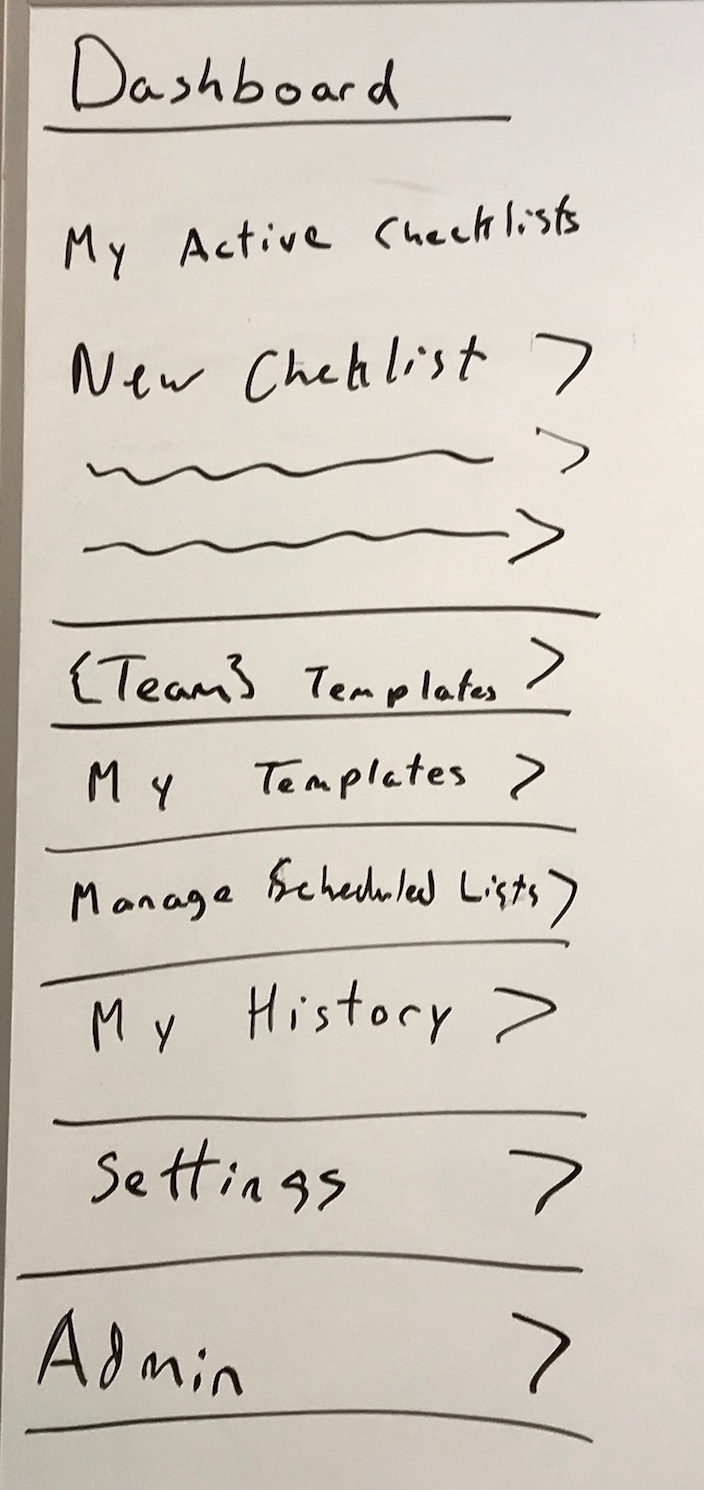 Dashboard
My Active Checklists
New Cheklist >
>
>
{Team} Templates >
My Templates >
Manage Scheduled Lists >
My History >
Settings >
Admin >